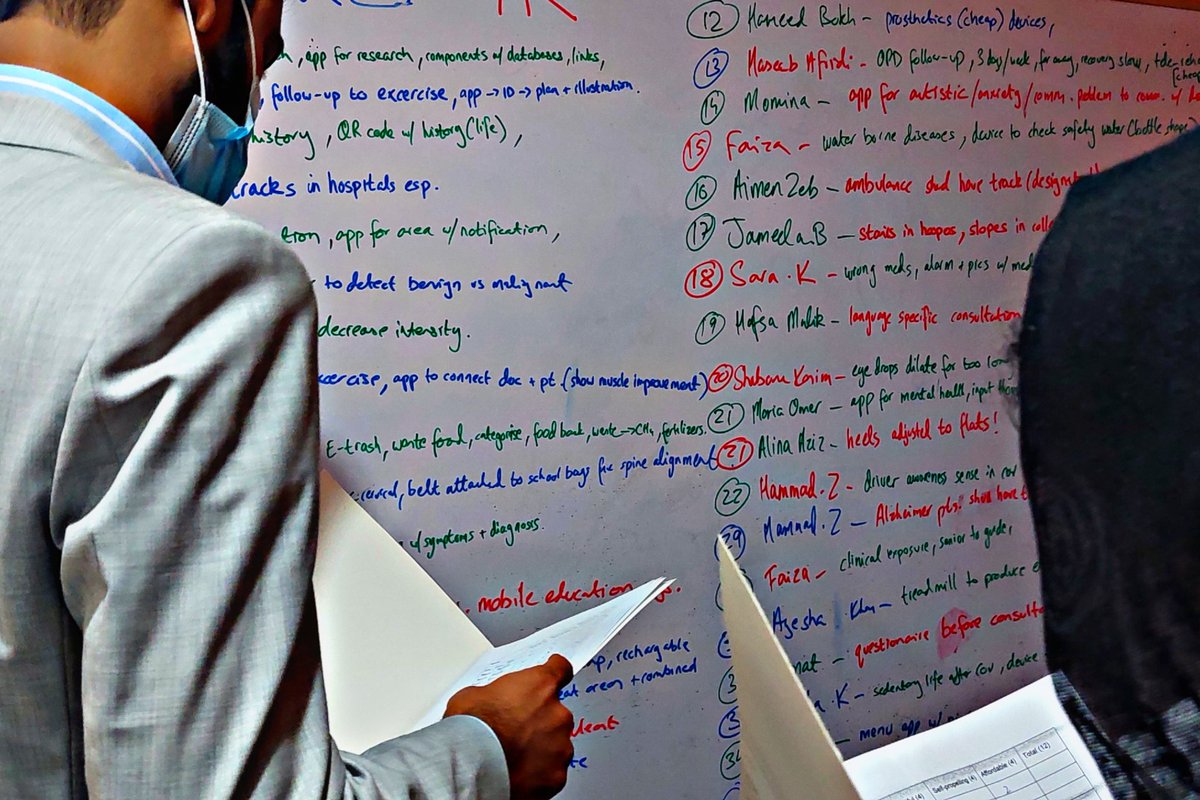 , app for research, components w/ databases, links,
, follow-up to excercise, app → ID → plan + illustration.
history, QR code w/ history (life),
tracks in hospitals esp.
tion, app for area w/ notification,
to detect benign vs malignant
decrease intensity.
app to connect doc + pt. (show muscle improvement)
E-trash, waste food, categorise, food bank, waste → CH4, fertilizers.
belt attached to school bags for spine alignment
w/ symptoms + diagnosis.
mobile education
rechargable
areas + combined
12 Hameed Bakh - prosthetics (cheap) devices,
13 Haseeb Afridi - OPD follow-up, 3 days/week, far away, recovery slow,
(cheap
14 Momina - app for autistic/anxiety/comm. problem to comm. w/
15 Faiza - water borne diseases, device to check safety water (bottle shape)
16 Aimen Zeb - ambulance shud have track (design
17 Jameela.B - stairs in hospes, slopes in
18 Sara.K - wrong meds, alarm + pics w/ med
19 Hafsa Malik - language specific consultation
20 Shabana Karim - eye drops dilate for too long
21 Maria Omer - app for mental health, input
21 Alina Aziz - heels adjusted to flats!
22 Hammad.Z - driver awareness sense in car
29 Hammad.Z - Alzheimer pts. shud have
Faiza - clinical exposure, senior to guide,
Ayesha Khan - treadmill to produce
nat - questionaire before consult
.K - sedentary life after cov, device
menu app w/
Self-propelling (4) Affordable (4) Total (12)
2